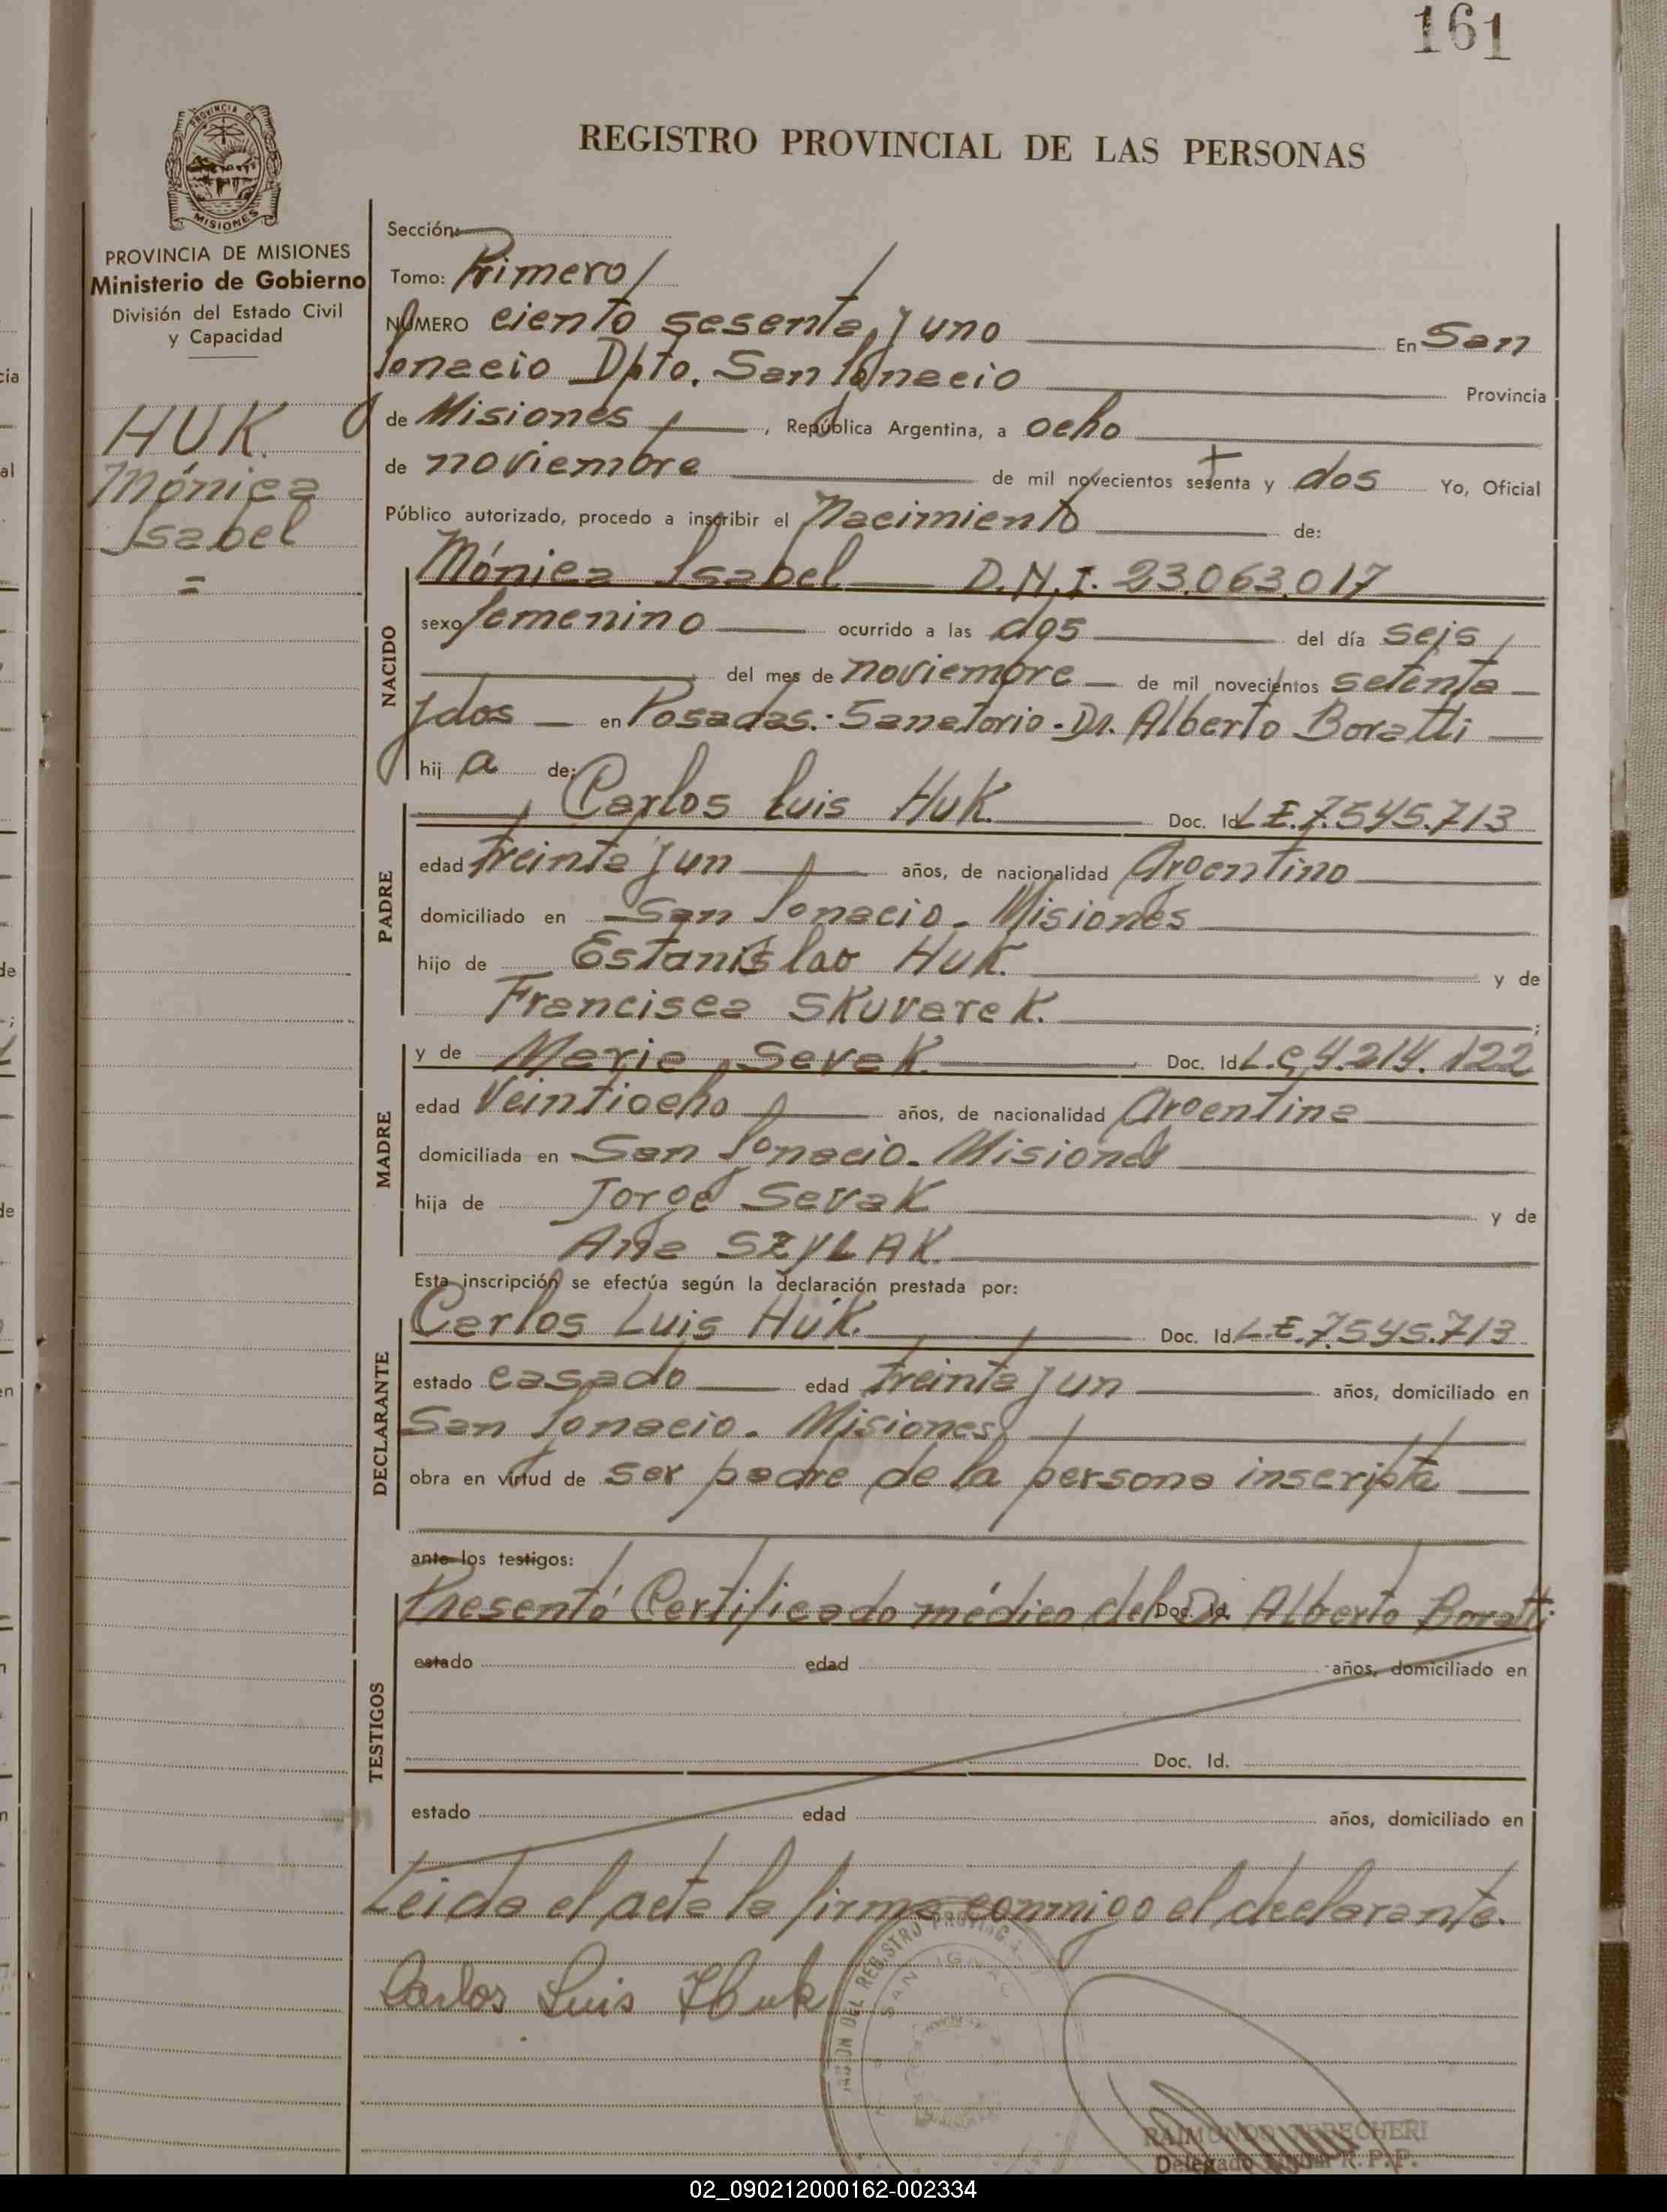 161
PROVINCIA DE
MISIONES
REGISTRO PROVINCIAL DE LAS PERSONAS
PROVINCIA DE MISIONES
Ministerio de Gobierno
División del Estado Civil
y Capacidad
HUK.
Mónica
Isabel
=
Sección:
Tomo: Primero
NÚMERO ciento sesenta y uno En San
Ignacio Dpto. San Ignacio Provincia
de Misiones, República Argentina, a ocho
de noviembre de mil novecientos setenta y dos Yo, Oficial
Público autorizado, procedo a inscribir el Nacimiento de:
NACIDO
Mónica Isabel D.N.I. 23.063.017
sexo femenino ocurrido a las dos del día seis
del mes de noviembre de mil novecientos setenta
y dos en Posadas.- Sanatorio - Dr. Alberto Boratti
hij a de:
PADRE
Carlos Luis Huk. Doc. Id L.E.7.545.713
edad treinta y un años, de nacionalidad Argentino
domiciliado en San Ignacio - Misiones
hijo de Estanislao Huk. y de
Francisca SKuvareK.;
MADRE
y de María SevaK. Doc. Id L.C.4.214.122
edad Veintiocho años, de nacionalidad Argentina
domiciliada en San Ignacio - Misiones
hija de Jorge SevaK y de
Ana SZYLAK.
Esta inscripción se efectúa según la declaración prestada por:
DECLARANTE
Carlos Luis Huk. Doc. Id. L.E.7.545.713
estado casado edad treinta y un años, domiciliado en
San Ignacio. Misiones
obra en virtud de ser padre de la persona inscripta
ante los testigos:
TESTIGOS
Presentó Certificado médico del Dr. Doc. Id. Alberto Boratti
estado edad años, domiciliado en
Doc. Id.
estado edad años, domiciliado en
Leida el acta la firma conmigo el declarante.
Carlos Luis Huk
DEL REGISTRO
SAN IGNAC
RAIMUNDO
Delegado Titular R. P. P.
02_090212000162-002334